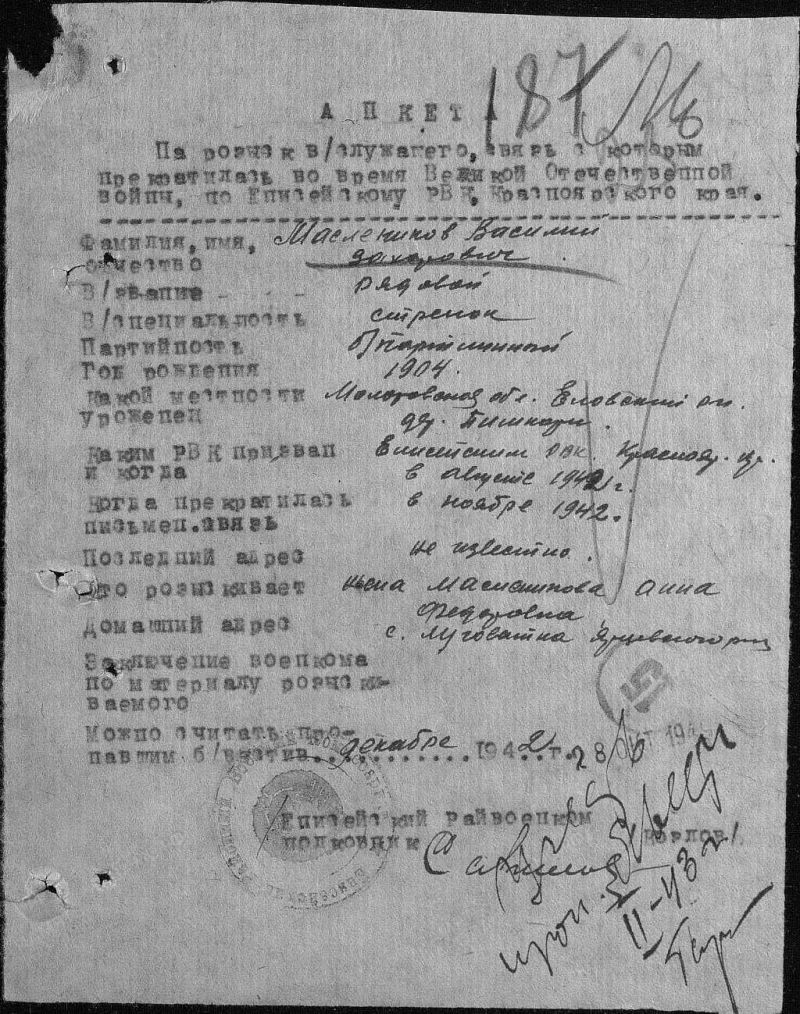 187
АНКЕТА
На розыск в/служащего, связь с которым
прекратилась во время Великой Отечественной
войны, по Енисейскому РВК, Красноярского края.
Фамилия, имя, Маслеников Василий
отчество Захарович
В/звание рядовой
В/специальность стрелок
Партийность б/партийный
Год рождения 1904.
Какой местности Молотовская обл. Еловский
уроженец дер. Пишкари.
Каким РВК призван Енисейским рвк. Краснояр. кр.
и когда в августе 1942 г.
Когда прекратилась в ноябре 1942.
письмен.связь
Последний адрес не известно.
Кто розыскивает жена Масленикова Анна
Федоровна
Домашний адрес с. Луговатка Ярцевского
Заключение военкома
по материалу розыски-
ваемого
Можно считать про-
павшим б/вести в декабре 1942 г.
28
Енисейский Райвоенком
полковник /Козлов/
II-43 г